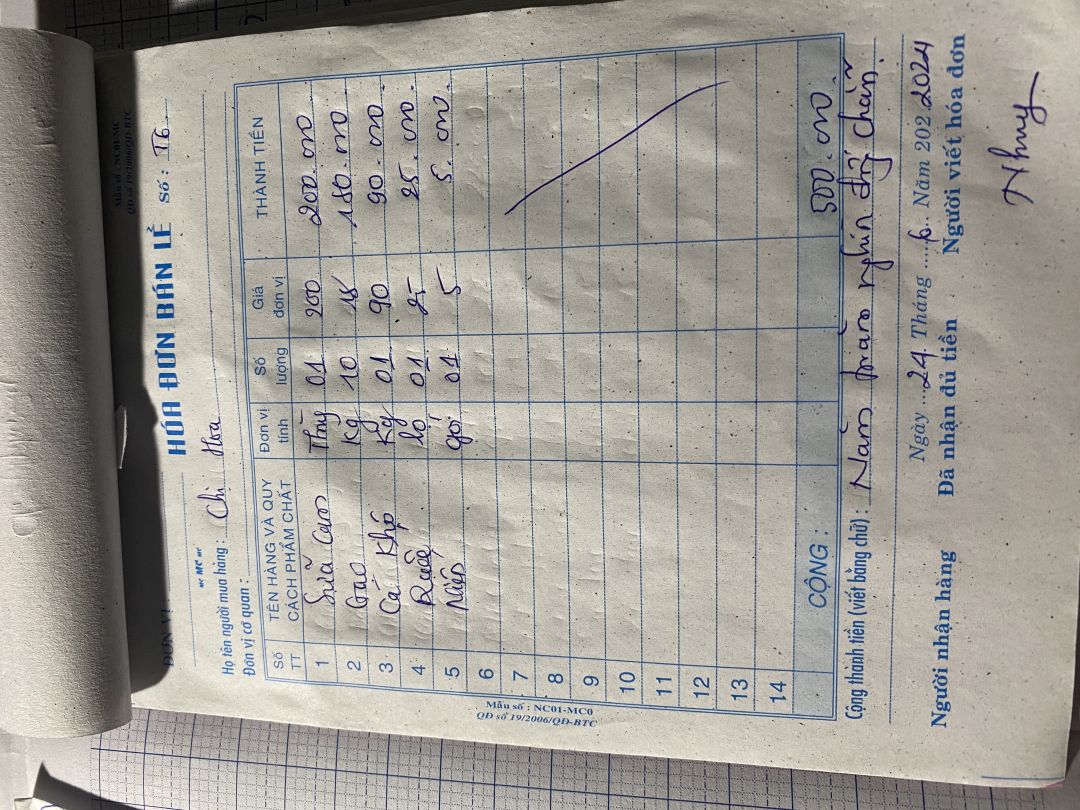 Mẫu số : NC01-MC
QĐ số 19/2006/QĐ-BTC
ĐƠN VỊ
HÓA ĐƠN BÁN LẺ Số : 16
"MC"
Họ tên người mua hàng : Chị Hoa
Đơn vị cơ quan :
Số TT TÊN HÀNG VÀ QUY CÁCH PHẨM CHẤT Đơn vị tính Số lượng Giá đơn vị THÀNH TIỀN
1 Sữa Cam Thùg 01 200 200.000
2 Gạo Kg 10 18 180.000
3 Cá Khô Kg 01 90 90.000
4 lọ 01 25 25.000
5 gói 01 5 5.000
6
7
8
9
10
11
12
13
14
CỘNG : 500.000
Mẫu số : NC01-MC0
QĐ số 19/2006/QĐ-BTC
Cộng thành tiền (viết bằng chữ) : Năm trăm nghìn đg chẵn.
Ngày 24 Tháng 6 Năm 202 2024
Người nhận hàng Đã nhận đủ tiền Người viết hóa đơn
Nhung